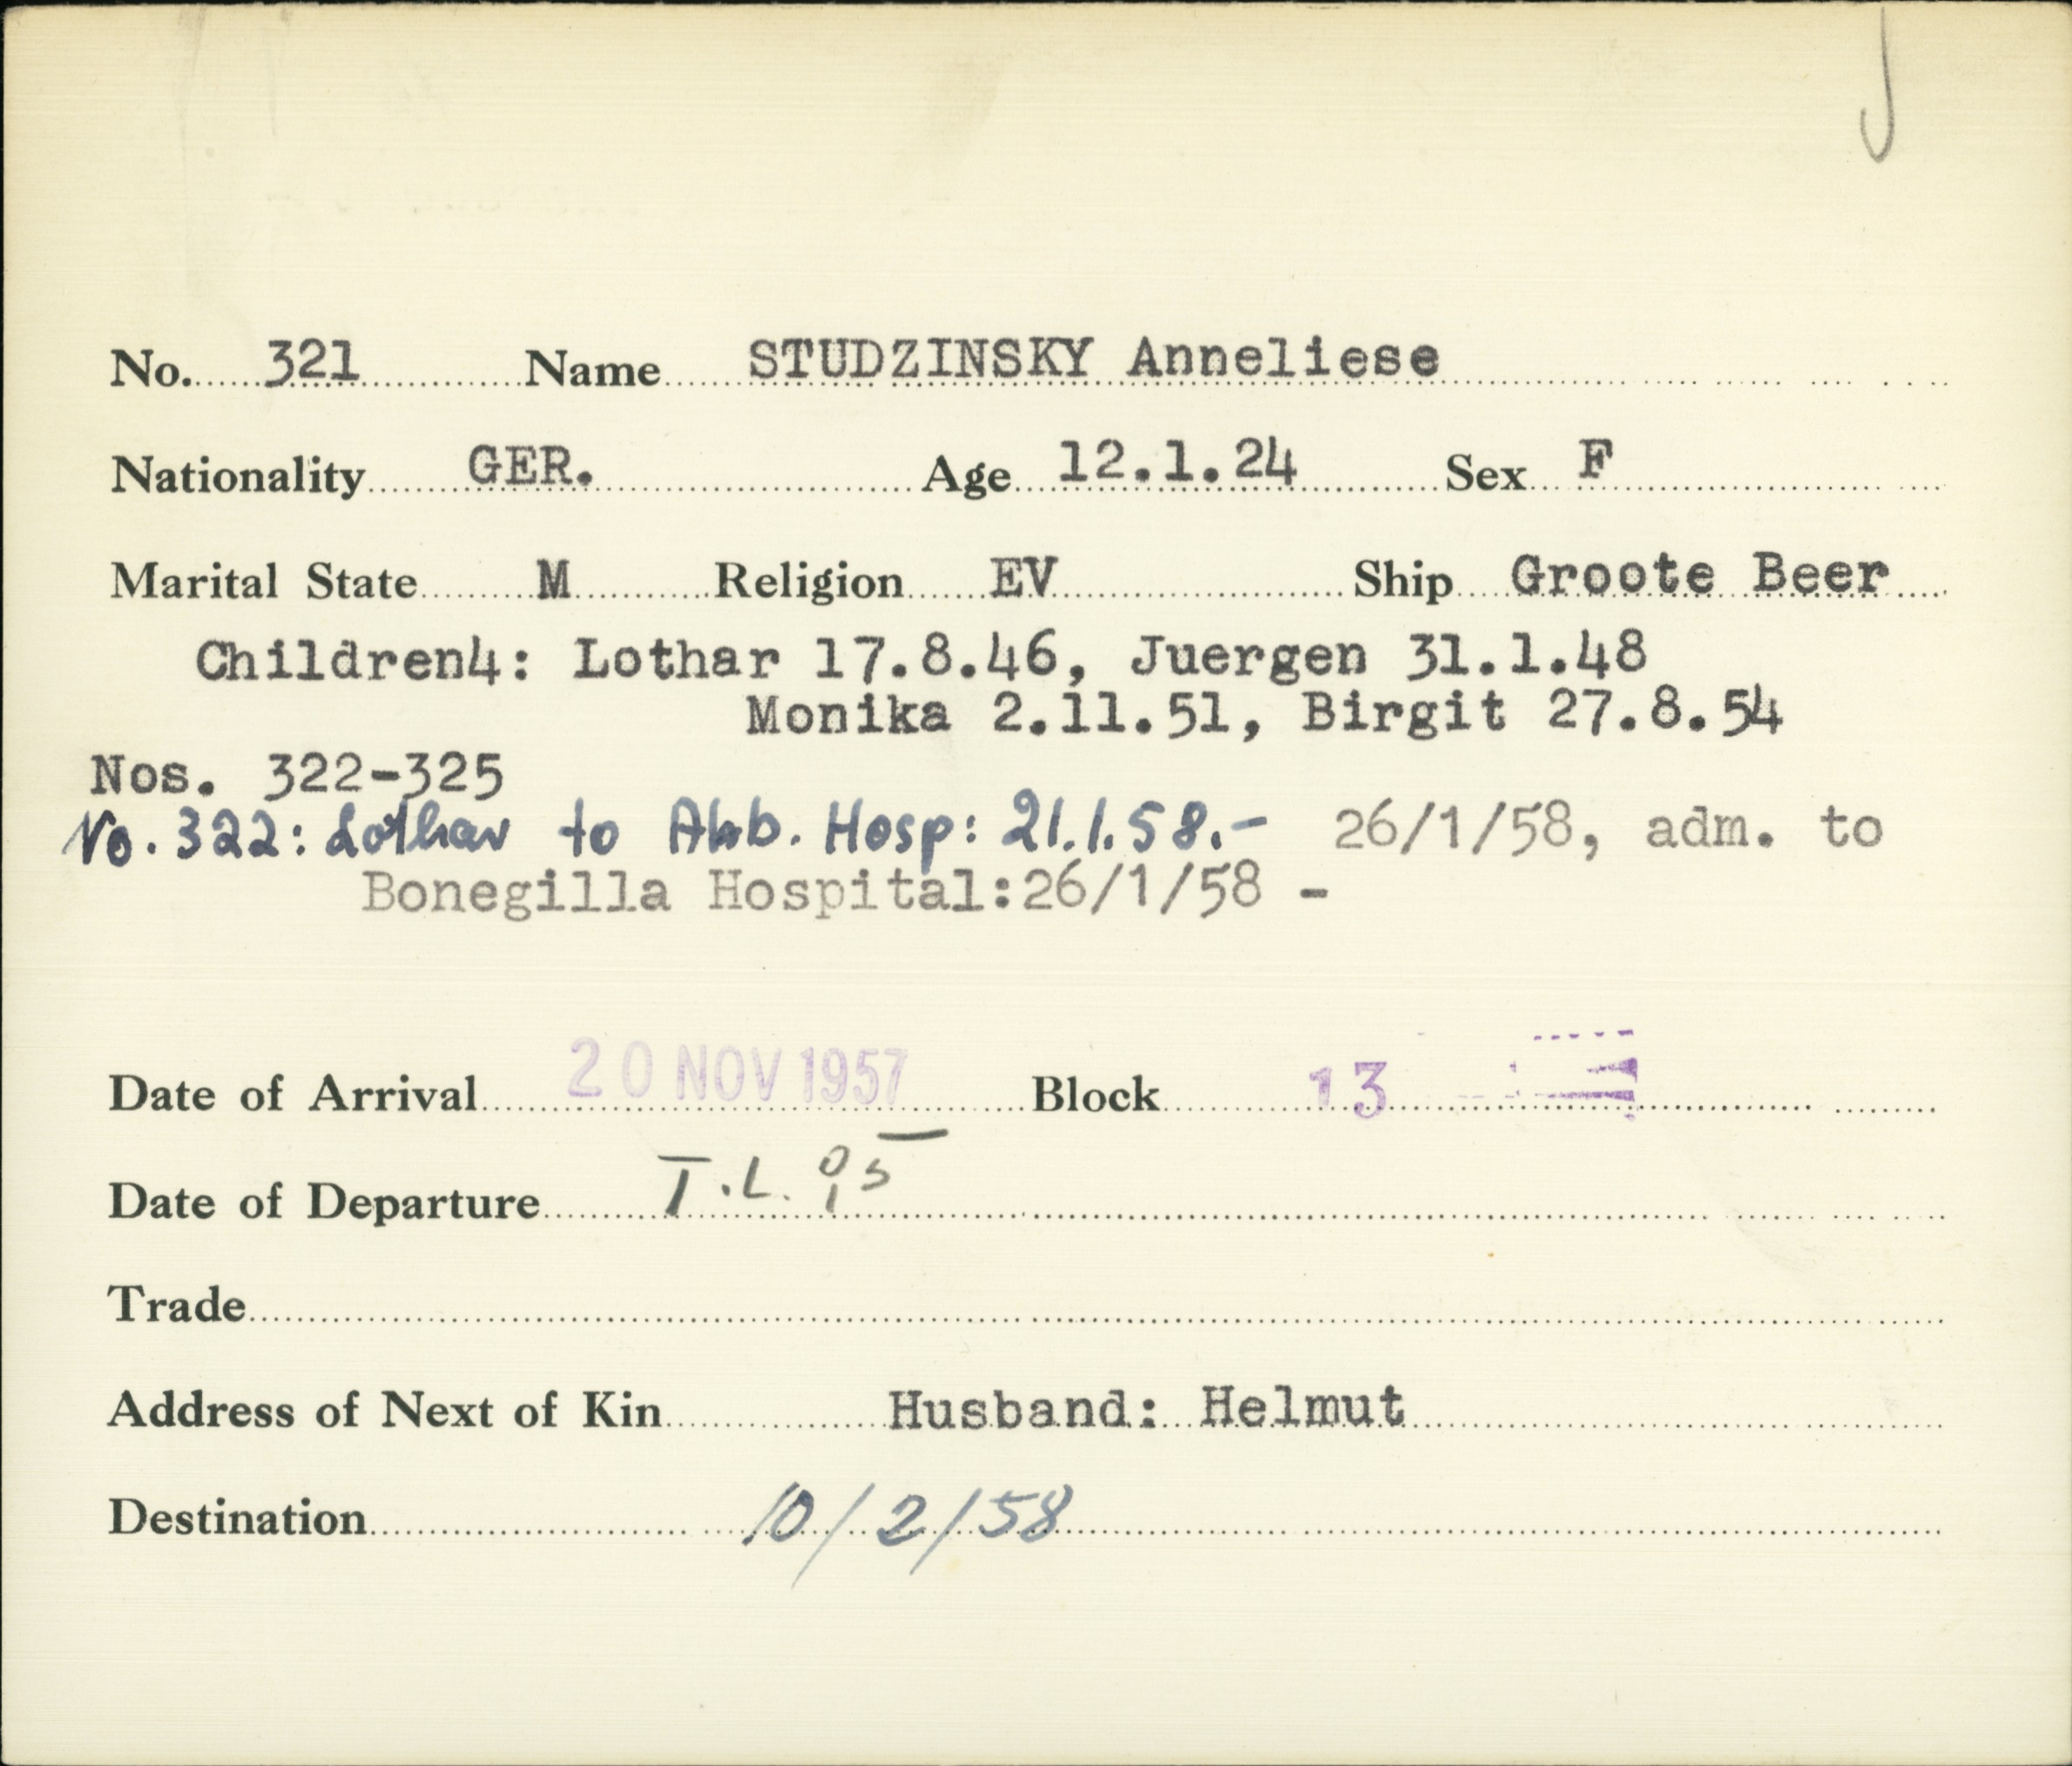 No. 321 Name STUDZINSKY Anneliese
Nationality GER. Age 12.1.24 Sex F
Marital State M Religion EV Ship Groote Beer
Children4: Lothar 17.8.46, Juergen 31.1.48
Monika 2.11.51, Birgit 27.8.54
Nos. 322-325
No. 322: Lothar to Hosp: 21.1.58.- 26/1/58, adm. to
Bonegilla Hospital:26/1/58 -
Date of Arrival 20 NOV 1957 Block 13
Date of Departure T.L.
Trade
Address of Next of Kin Husband: Helmut
Destination 10/2/58